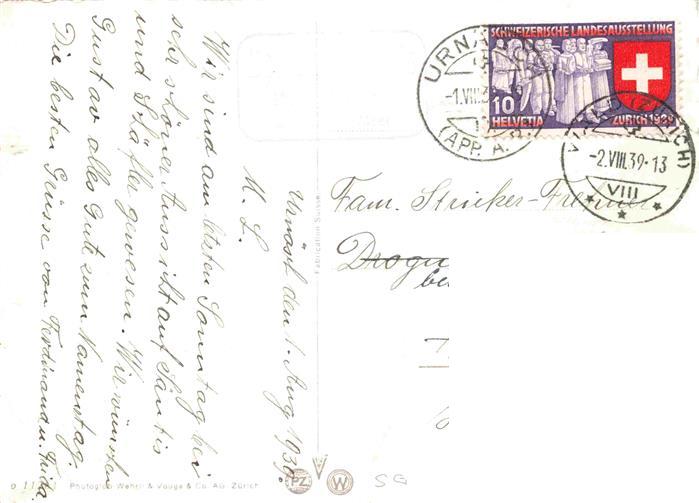 Urnäsch den 1. Aug 1939.
M. L.
Wir sind am letzten Sonntag bei
sehr schöner Aussicht auf Säntis
und Schäfler gewesen. Wir wünschen
Gustav alles Gute zum Namenstag.
Die besten Grüsse von Ferdinand u. Frida
Fam. Stricker-
Drogu
bei
SCHWEIZERISCHE LANDESAUSSTELLUNG
10
HELVETIA
ZÜRICH 1939
URNÄSCH
-1.VIII.39
(APP. A. RH.)
(ZÜRICH)
-2.VIII.39-13
VIII
Fabrication Suisse
Photoglob-Wehrli & Vouga & Co. AG. Zürich
PZ
V
W
SG